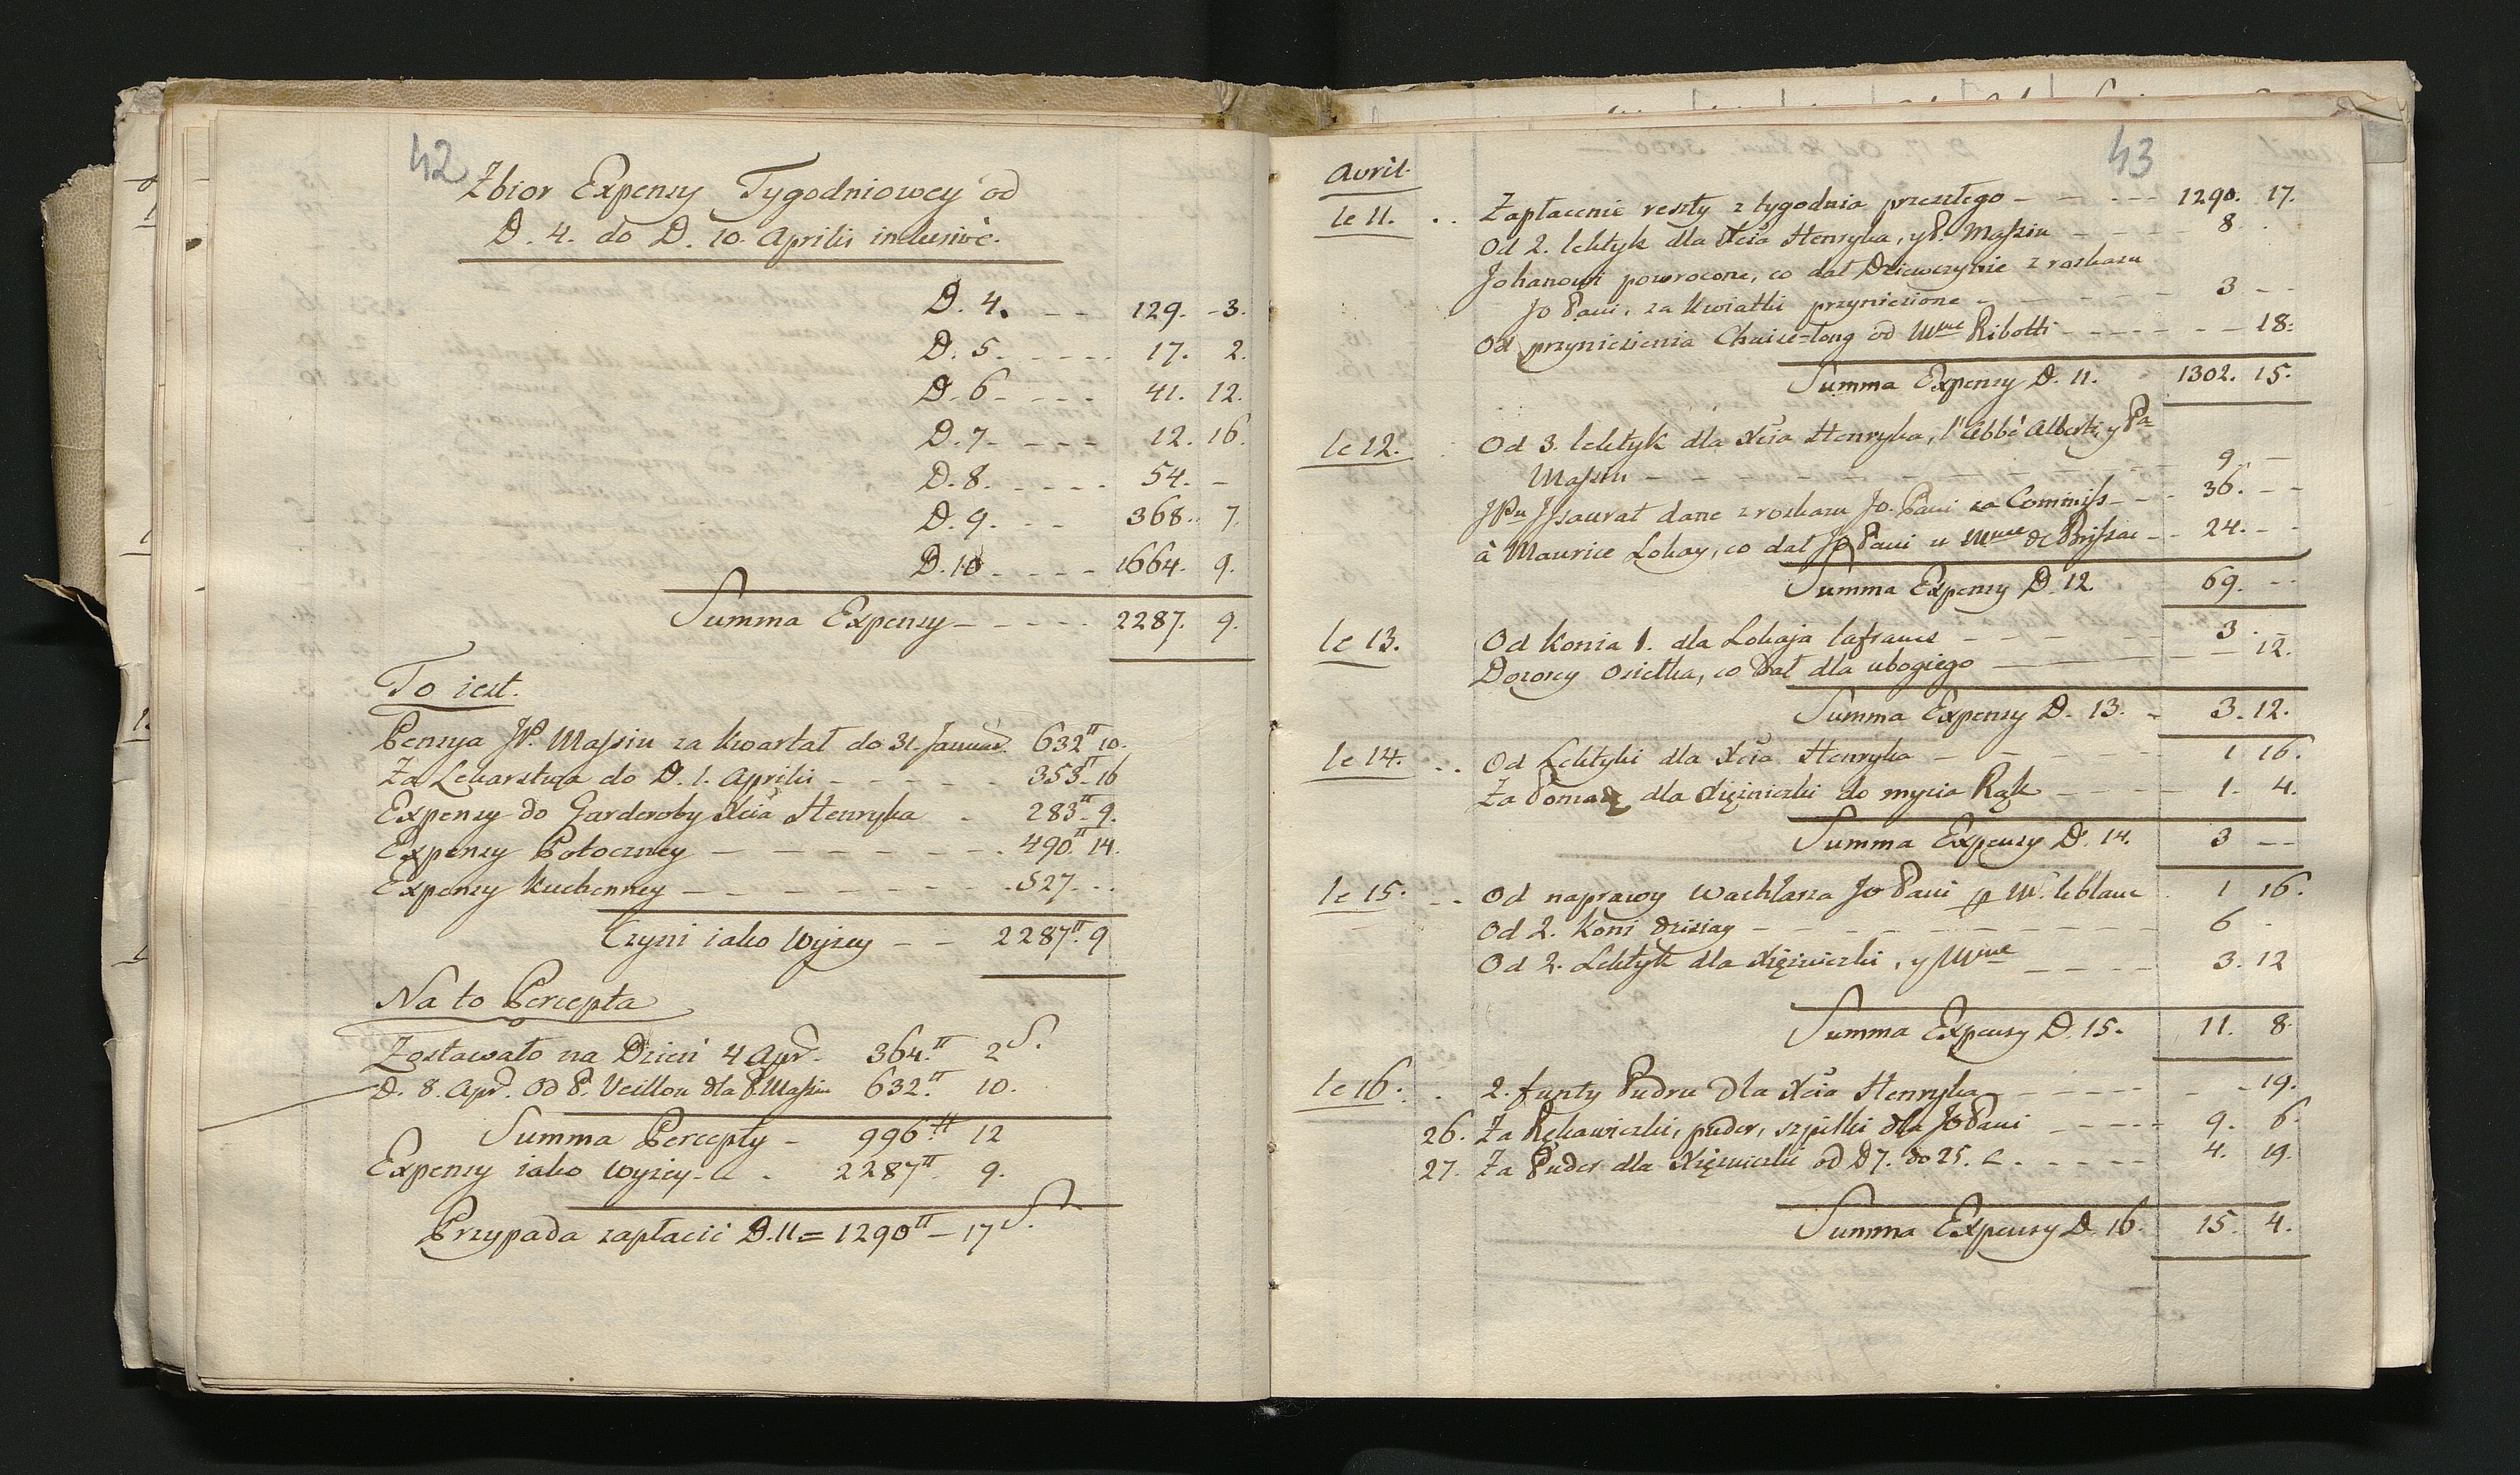 42
Zbior Expensy Tygodniowey od
D. 4. do D. 10. Aprilis inclusivè.
D. 4. - - 129. - 3.
D. 5. - - - - 17. 2.
D. 6 - - - - 41. 12.
D. 7 - - - - 12. 16.
D. 8. - - - - 54. -
D. 9. - - - 368. 7.
D. 10 - - - - 1664. 9.
Summa Expensy - - - - - 2287. 9.
To iest.
Pensya JP. Massiu za kwartał do 31. Januar. 632 10.
Za Lekarstwa do D. 1. Aprilis - - - - - 353 - 16
Expensy do Garderoby Xcia Henryka - 283 - 9.
Expensy Potoczney - - - - - - - - 490 14.
Expensy Kuchenney - - - - - - - - 527 - . .
Czyni iako wyzey - - 2287. 9
Na to Percepta
Zostawało na Dzień 4 Apr. 364. 2 S.
D. 8. Apr. Od P. Veillon dla P Massiu 632. 10.
Summa Percepty - 996. 12
Expensy iako wyzey - - 2287. 9.
Przypada zapłacić D. 11 = 1290 - 17 S.
43
Avril.
le 11. . . Zapłacenie reszty z tygodnia przeszłego - - - - 1290. 17.
Od 2. lektyk dla Xcia Henryka, y P. Massiu - - - - 8
Johanowi powrocone, co dał Dziewczynie z roskazu
Jo Pani, za kwiatki przyniesione - - - - - - 3 - -
Od przyniesienia Chaise=long od Mme Ribotti - - - - - - - 18.
Summa Expensy D. 11. 1302. 15.
le 12. Od 3. lektyk dla Xcia Henryka, l'Abbé Alberti, y Pa
Massiu - - - - - - - - - - 9 - -
JPu Issaurat dane z roskazu Jo. Pani za Commiss - - - 36. - -
à Maurice Lokay, co dał Jo Pani u Mme de Brissac - - 24. - -
Summa Expensy D. 12. 69. - -
le 13. Od Konia 1. dla Lokaja lafrance - - - - - 3 . -
Dozorcy osiełka, co dał dla ubogiego - - - 12.
Summa Expensy D. 13. - 3. 12.
le 14. . . Od Lektyki dla Xcia Henryka - - - - - - 1 16.
Za Pomadę dla Xięzniczki do mycia Rąk - - - - - 1. 4.
Summa Expensy D. 14. 3 - -
le 15. - - Od naprawy wachlarza Jo Pani p M. leblanc 1 16.
Od 2. Koni dzisiay - - - - - - - - - - 6 -
Od 2. Lektyk dla Xięzniczki, y Mme - - - - 3. 12
Summa Expensy D. 15. 11. 8.
le 16. . 2. funty Pudru dla Xcia Henryka - - - - - - - 19.
26. Za Rękawiczki, puder, szpilki dla Jo Pani - - - - - 9. 6.
27. Za Puder dla Xięzniczki od D 7. do 25. - - - - - 4. 19.
Summa Expensy D. 16. 15. 4.